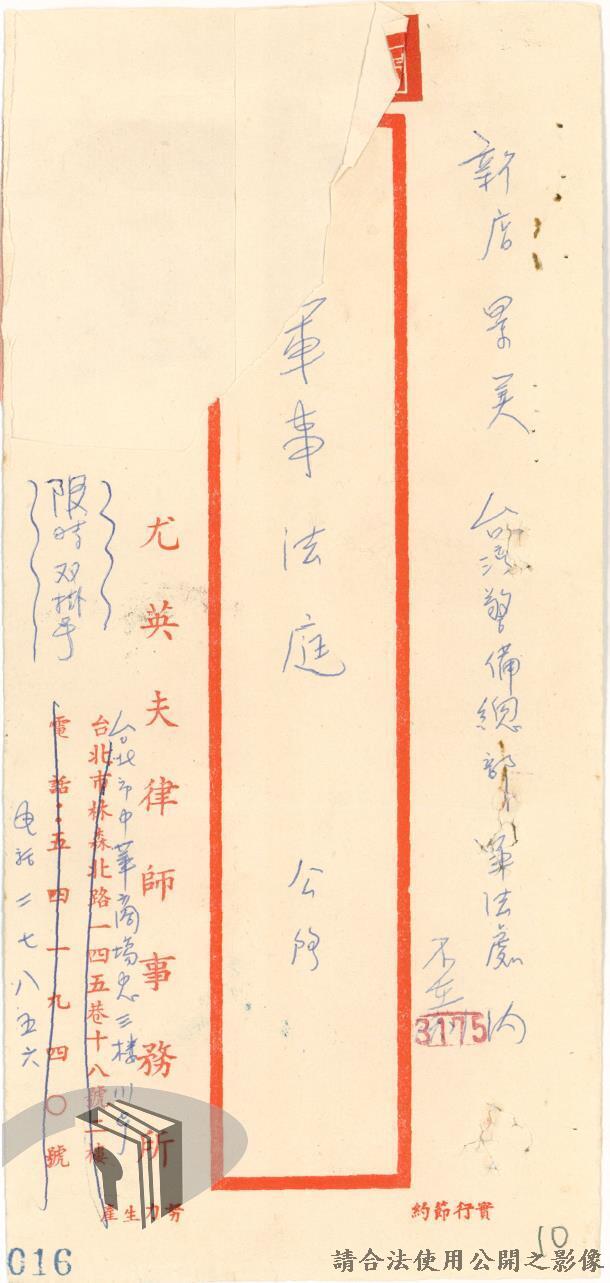 新店景美 台湾警備總部軍法處內
3175
軍事法庭 公啓
限時双掛号
尤英夫律師事務所
台北市中華商場忠三楼
台北市林森北路一四五巷十八號二樓
電話：五四一九四〇號
电話二七八五六
實行節約
勞力生產
016
10
請合法使用公開之影像